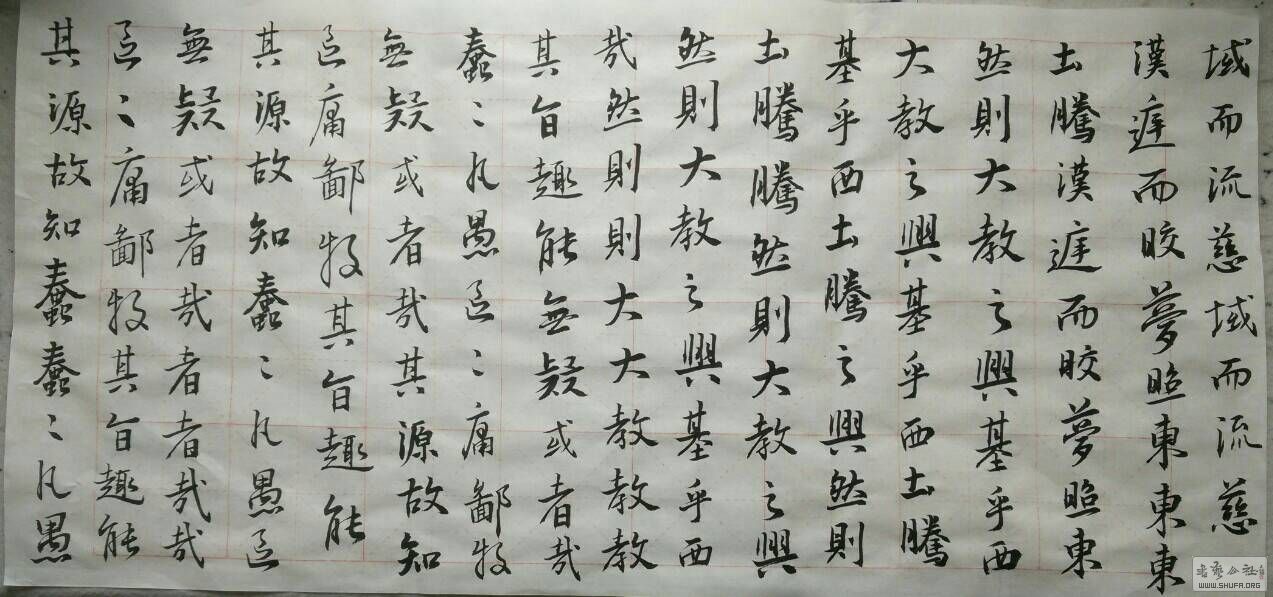 域而流慈域而流慈
漢庭而皎夢照東東東
土騰漢庭而皎夢照東
然則大教之興基乎西
大教之興基乎西土騰
基乎西土騰之興然則
土騰騰然則大教之興
然則大教之興基乎西
哉然則則大大教教教
其旨趣能無疑或者哉
蠢〻凡愚區〻庸鄙投
無疑或者哉其源故知
區庸鄙投其旨趣能
其源故知蠢〻凡愚區
無疑或者哉者者哉哉
區〻庸鄙投其旨趣能
其源故知蠢蠢〻凡愚
書藝公社
WWW.SHUFA.ORG